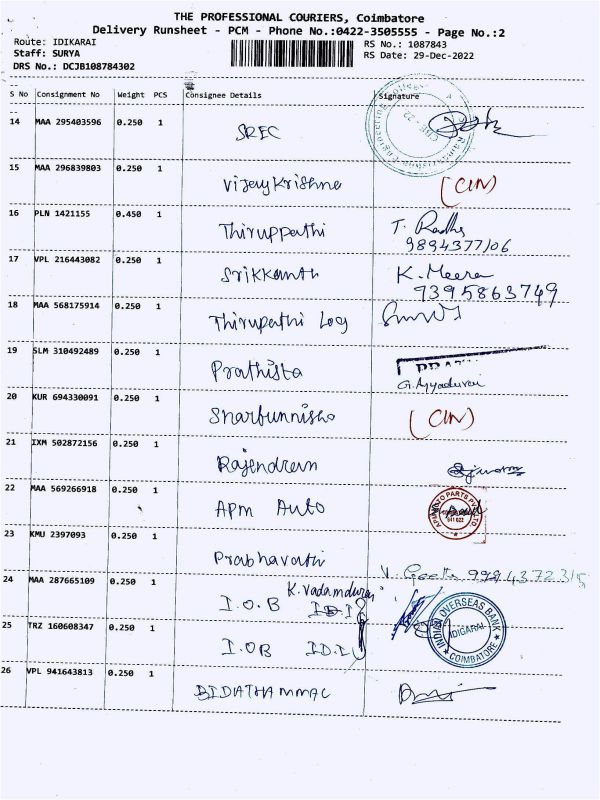 THE PROFESSIONAL COURIERS, Coimbatore
Delivery Runsheet - PCM - Phone No.:0422-3505555 - Page No.:2
Route: IDIKARAI
RS No.: 1087843
Staff: SURYA
RS Date: 29-Dec-2022
DRS No.: DCJB108784302
S No Consignment No Weight PCS Consignee Details Signature
14 MAA 295403596 0.250 1 SREC
15 MAA 296839803 0.250 1 Vijaykrishna (CIN)
16 PLN 1421155 0.450 1 Thiruppathi T. Radha
9894377106
17 VPL 216443082 0.250 1 Srikkanth K. Meera
7395863749
18 MAA 568175914 0.250 1 Thirupathi Log
19 SLM 310492489 0.250 1 Prathista
20 KUR 694330091 0.250 1 (CIN)
21 IXM 502872156 0.250 1 Rajendran
22 MAA 569266918 0.250 1 APM Auto
23 KMU 2397093 0.250 1 Prabhavathi V. Geetha
24 MAA 287665109 0.250 1 I.O.B
25 TRZ 160608347 0.250 1 I.OB ID.I
INDIAN OVERSEAS BANK
IDIGARAI
COIMBATORE
26 VPL 941643813 0.250 1